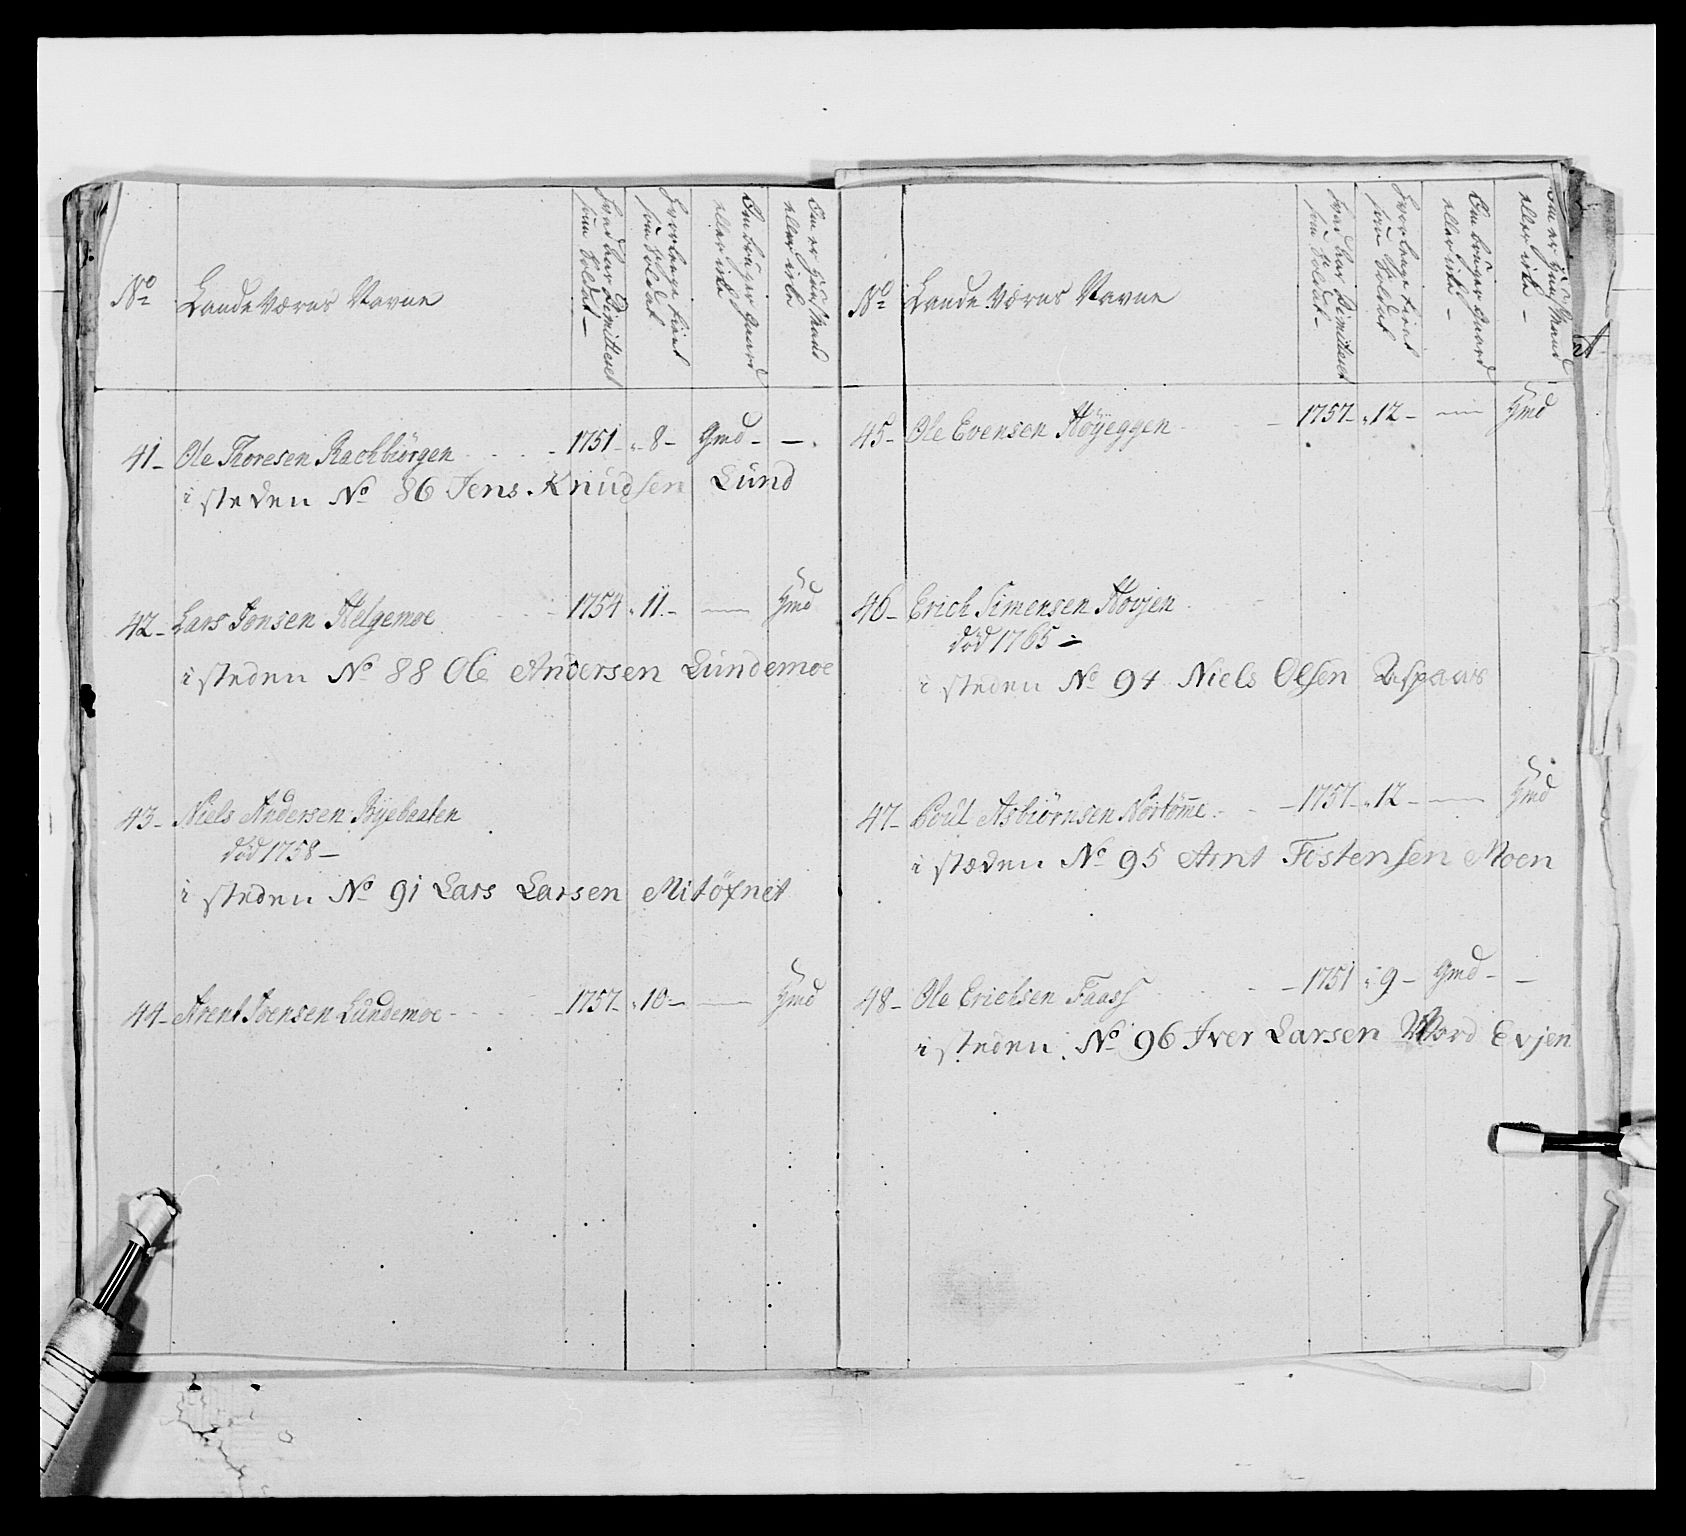 No
Lande Værns Navne
hvad har Dimiteret
som Soldat
hvor længe tient
som Soldat
Om bruger Gaard
eller icke
Om er Huus Mand
eller icke
41 Ole Thoresen Rachbiörgen 1751 8 Gmd
i steden No 86 Jens Knudsen Lund
42 Lars Jonsen Helgemoe 1754 11 Hmd
i steden No 88 Ole Andersen Lundemoe
43 Niels Andersen
död 1758
i steden No 91 Lars Larsen
44 Arent Joensen Lundemoe 1757 10 Hmd
No
Lande Værns Navne
hvad har Dimiteret
som Soldat
hvor længe tient
som Soldat
Om bruger Gaard
eller icke
Om er Huus Mand
eller icke
45 Ole Evensen Höyeggen 1757 12 Hmd
46 Erich Simensen Hovjen
död 1765
i steden No 94 Niels Olsen Aspaas
47 Poul Asbiörnsen Nortömme 1757 12 Hmd
i stæden No 95 Arnt Fostensen Moen
48 Ole Erichsen Faass 1751 9 Gmd
i steden No 96 Iver Larsen Evjen